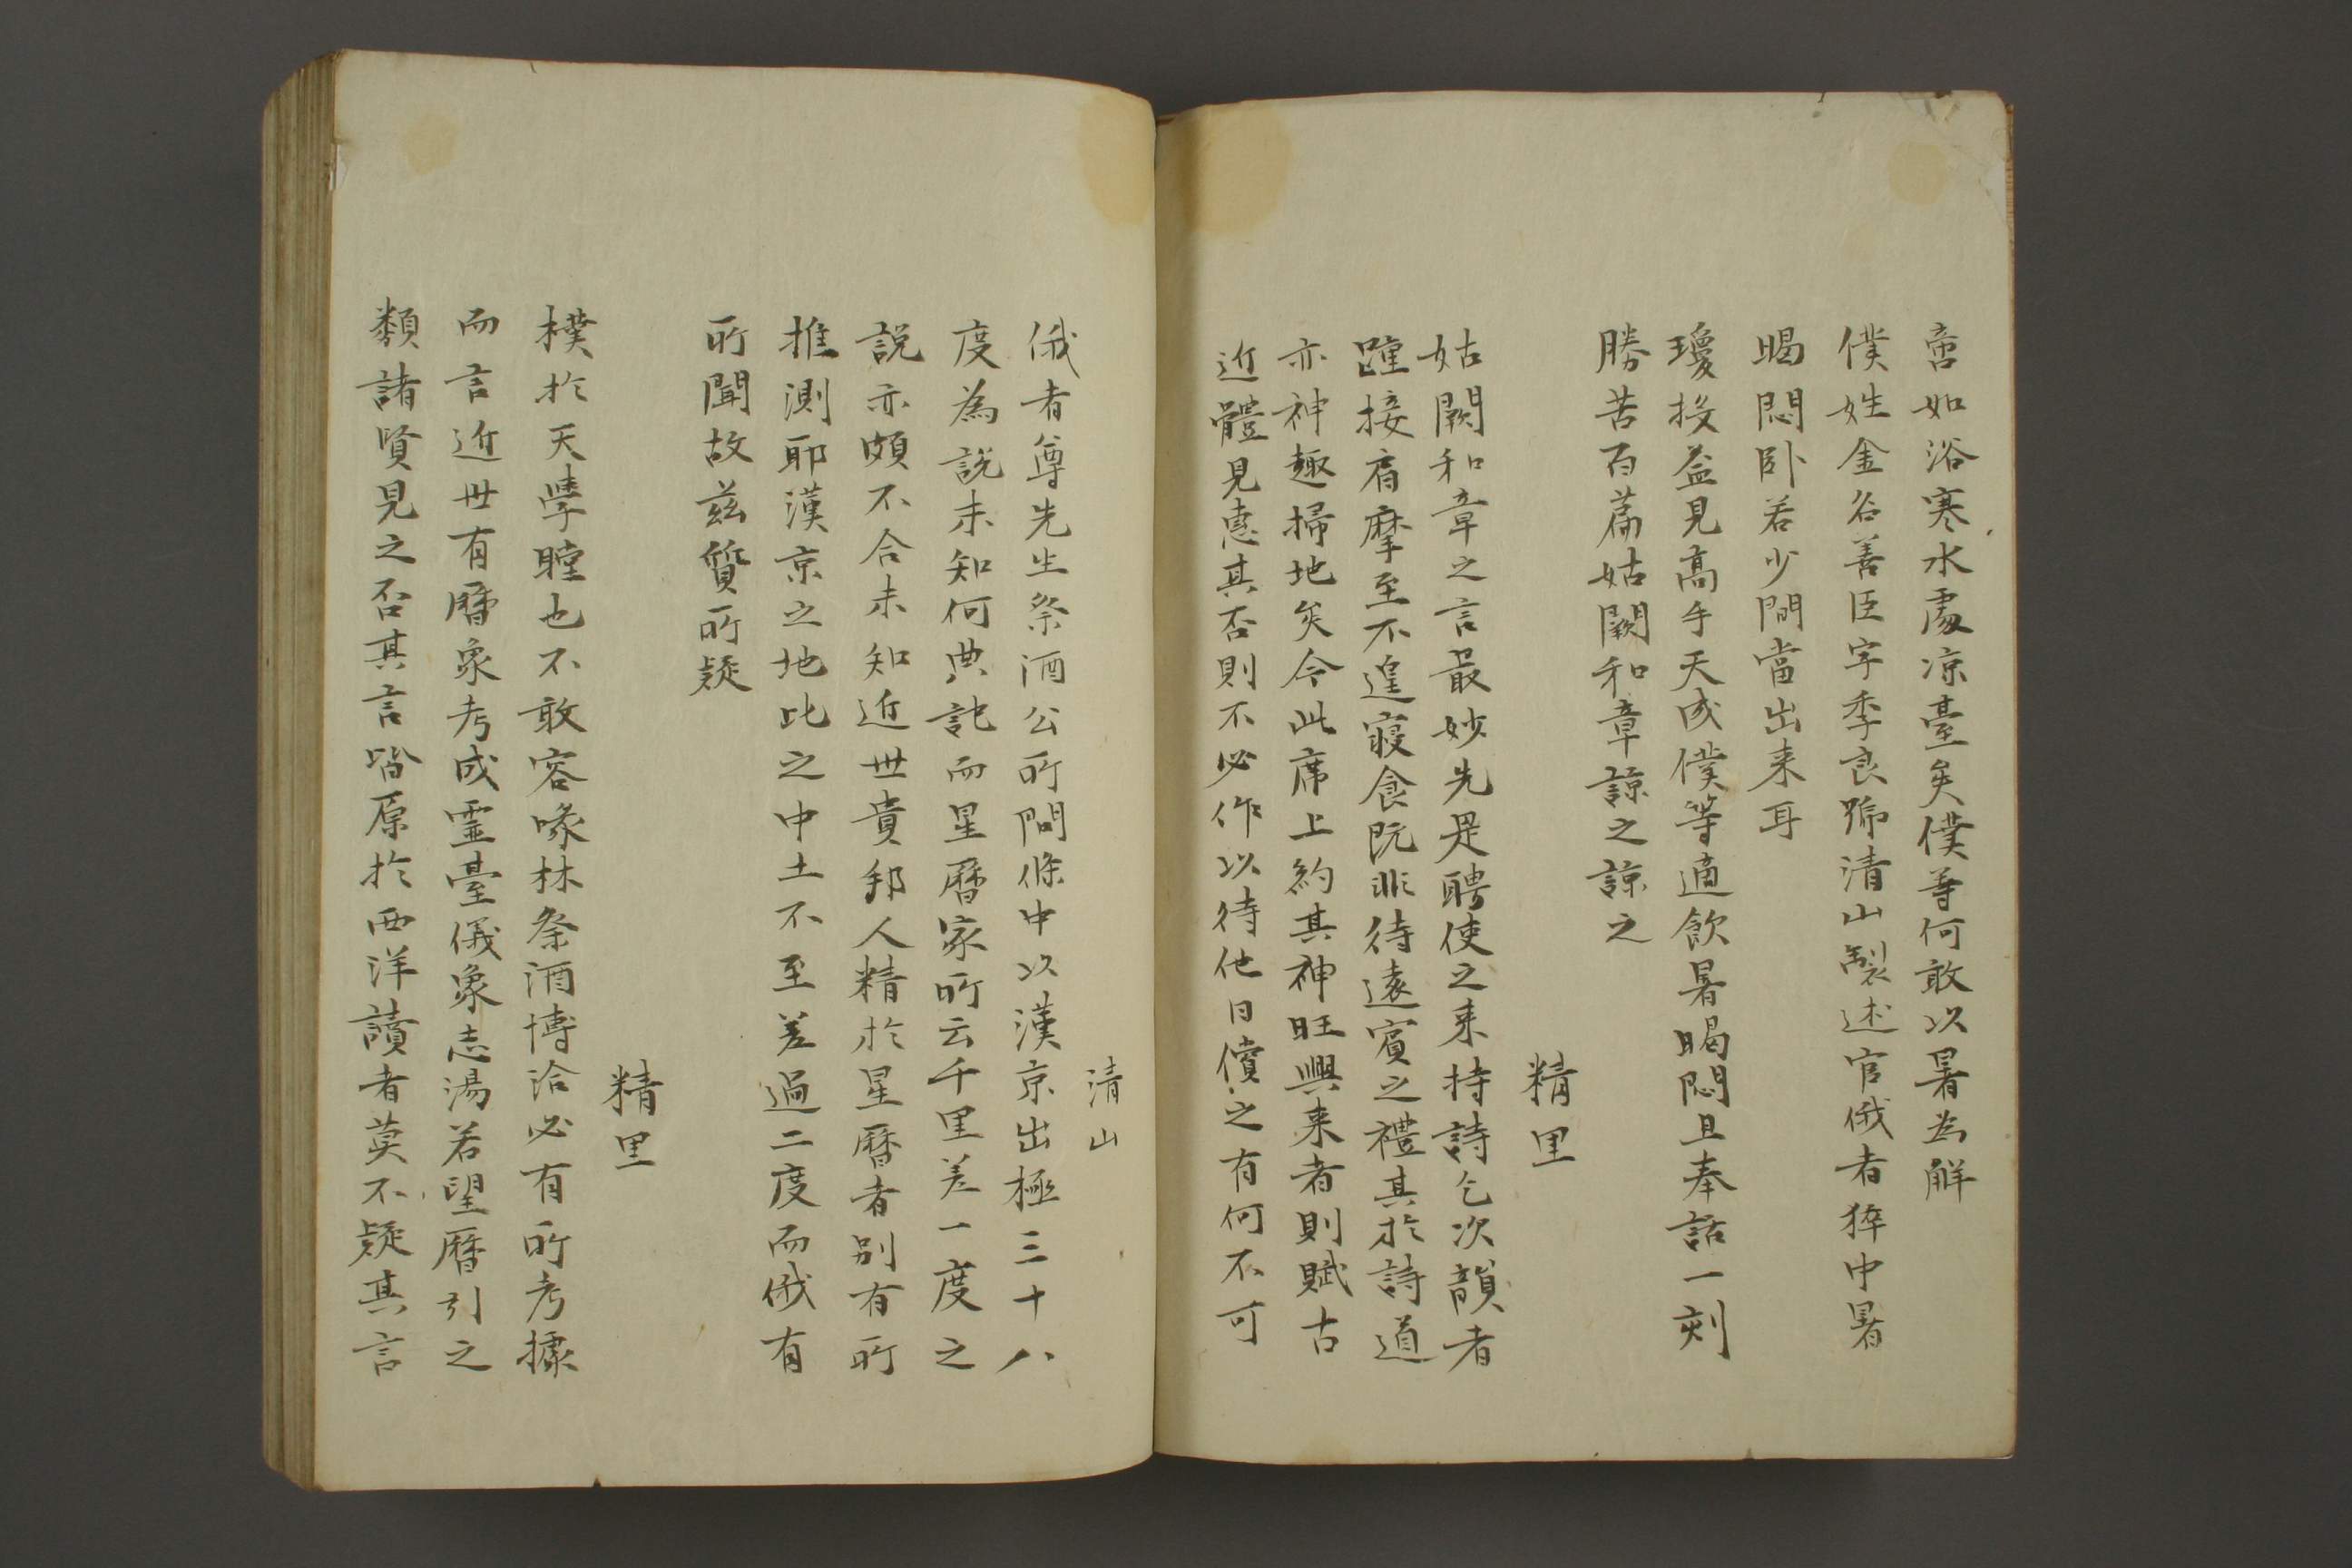 啻如浴寒水處凉臺矣僕等何敢以暑為解
僕姓金名善臣字季良號清山製述官俄者猝中暑
暍悶卧若少間當出来耳
瓊投益見高手天成僕等適飲暑暍悶且奉話一刻
勝苦百篇姑闕和章諒之諒之
精里
姑闕和章之言最妙先是聘使之来持詩乞次韻者
踵接肩摩至不遑寢食既非待遠賓之禮其於詩道
亦神趣掃地矣今此席上約其神旺興来者則賦古
近體見惠其否則不必作以待他日償之有何不可
清山
俄者尊先生祭酒公所問條中以漢京出極三十八
度為説未知何典記而星曆家所云千里差一度之
説亦頗不合未知近世貴邦人精於星曆者別有所
推測耶漢京之地比之中土不至差過二度而俄有
所聞故兹質所疑
精里
樸於天學瞠也不敢容喙林祭酒博洽必有所考據
而言近世有曆象考成霊臺儀象志湯若望曆引之
類諸賢見之否其言皆原於西洋讀者莫不疑其言